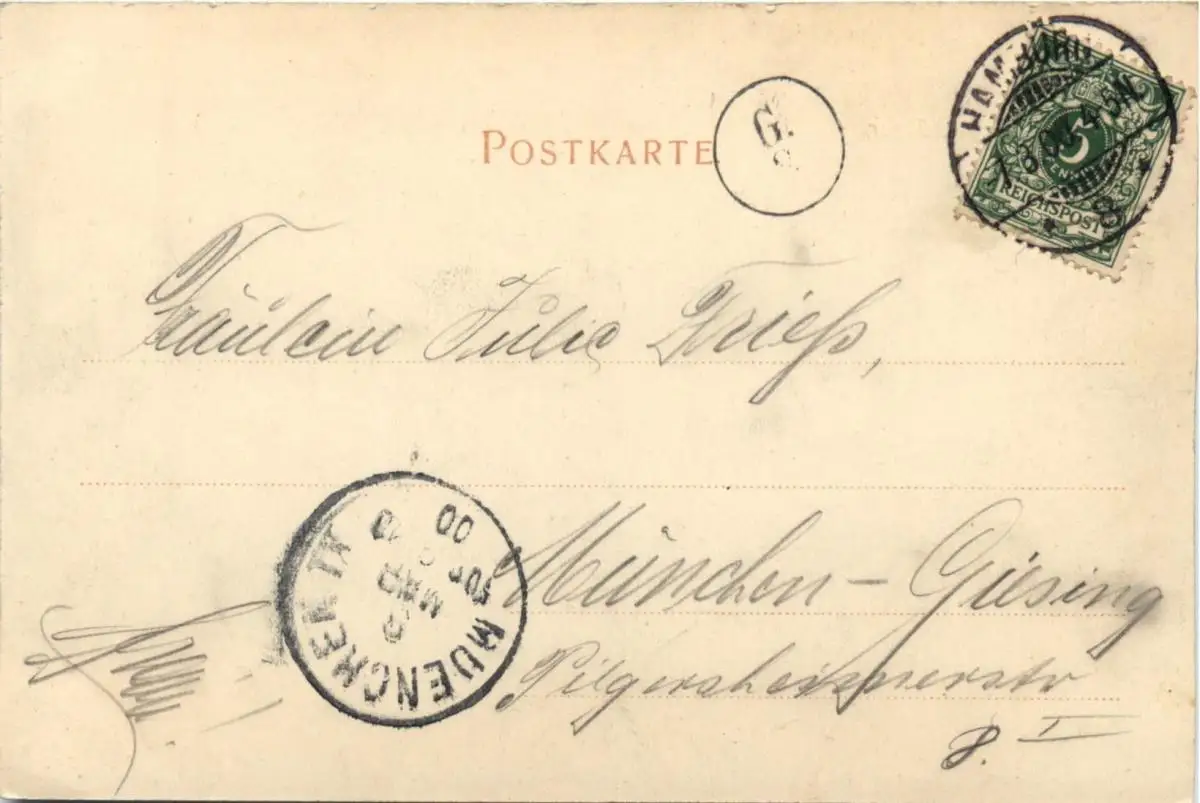 POSTKARTE
G.
HAMBURG
7.3.00.4-5N.
* 8 *
5
REICHSPOST
Fräulein Julie Frieß,
MUENCHEN IX
MAR
00
München – Giesing
Pilgersheimerstr
8. I